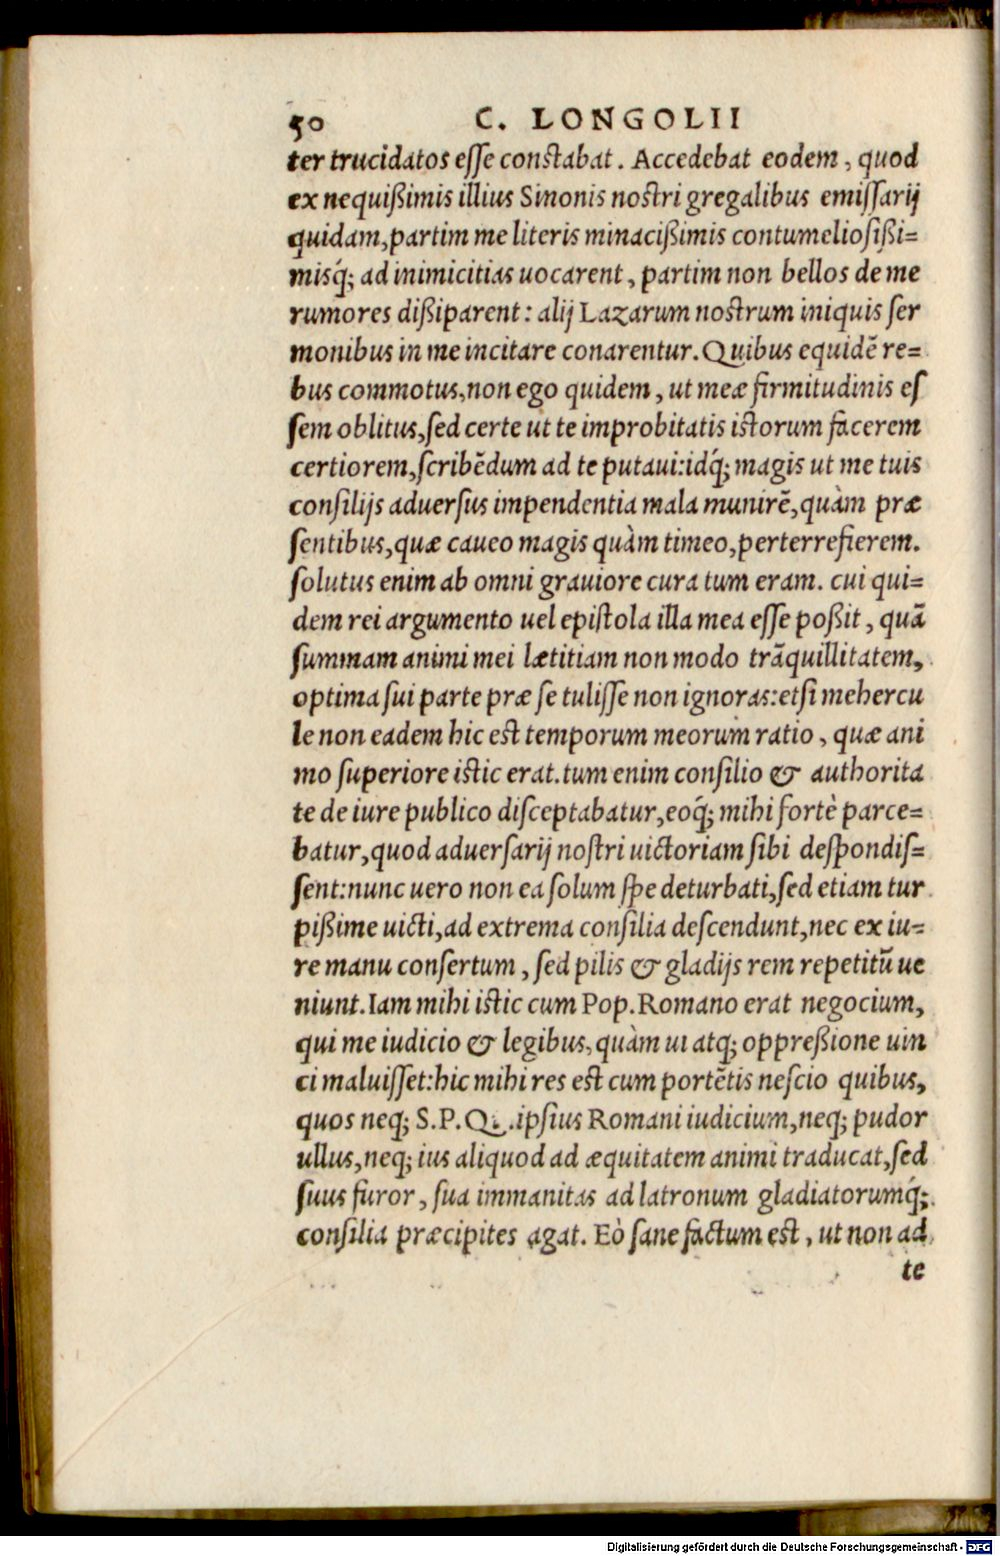 50 C. LONGOLII
ter trucidatos esse constabat. Accedebat eodem, quod
ex nequißimis illius Sinonis nostri gregalibus emissarij
quidam, partim me literis minacißimis contumeliosißi=
misq́; ad inimicitias uocarent, partim non bellos de me
rumores dißiparent: alij Lazarum nostrum iniquis ser
monibus in me incitare conarentur. Quibus equidē re=
bus commotus, non ego quidem, ut meæ firmitudinis es
sem oblitus, sed certe ut te improbitatis istorum facerem
certiorem, scribēdum ad te putaui: idq́; magis ut me tuis
consilijs aduersus impendentia mala munirē, quàm præ
sentibus, quæ caueo magis quàm timeo, perterrefierem.
solutus enim ab omni grauiore cura tum eram. cui qui=
dem rei argumento uel epistola illa mea esse poßit, quā
summam animi mei lætitiam non modo trāquillitatem,
optima sui parte præ se tulisse non ignoras: etsi mehercu
le non eadem hic est temporum meorum ratio, quæ ani
mo superiore istic erat. tum enim consilio & authorita
te de iure publico disceptabatur, eoq́; mihi fortè parce=
batur, quod aduersarij nostri uictoriam sibi despondis=
sent: nunc uero non ea solum spe deturbati, sed etiam tur
pißime uicti, ad extrema consilia descendunt, nec ex iu=
re manu consertum, sed pilis & gladijs rem repetitū ue
niunt. Iam mihi istic cum Pop. Romano erat negocium,
qui me iudicio & legibus, quàm ui atq; oppreßione uin
ci maluisset: hic mihi res est cum portētis nescio quibus,
quos neq; S.P.Q. ipsius Romani iudicium, neq; pudor
ullus, neq; ius aliquod ad æquitatem animi traducat, sed
suus furor, sua immanitas ad latronum gladiatorumq́;
consilia præcipites agat. Eò sane factum est, ut non ad
te
Digitalisierung gefördert durch die Deutsche Forschungsgemeinschaft - DFG